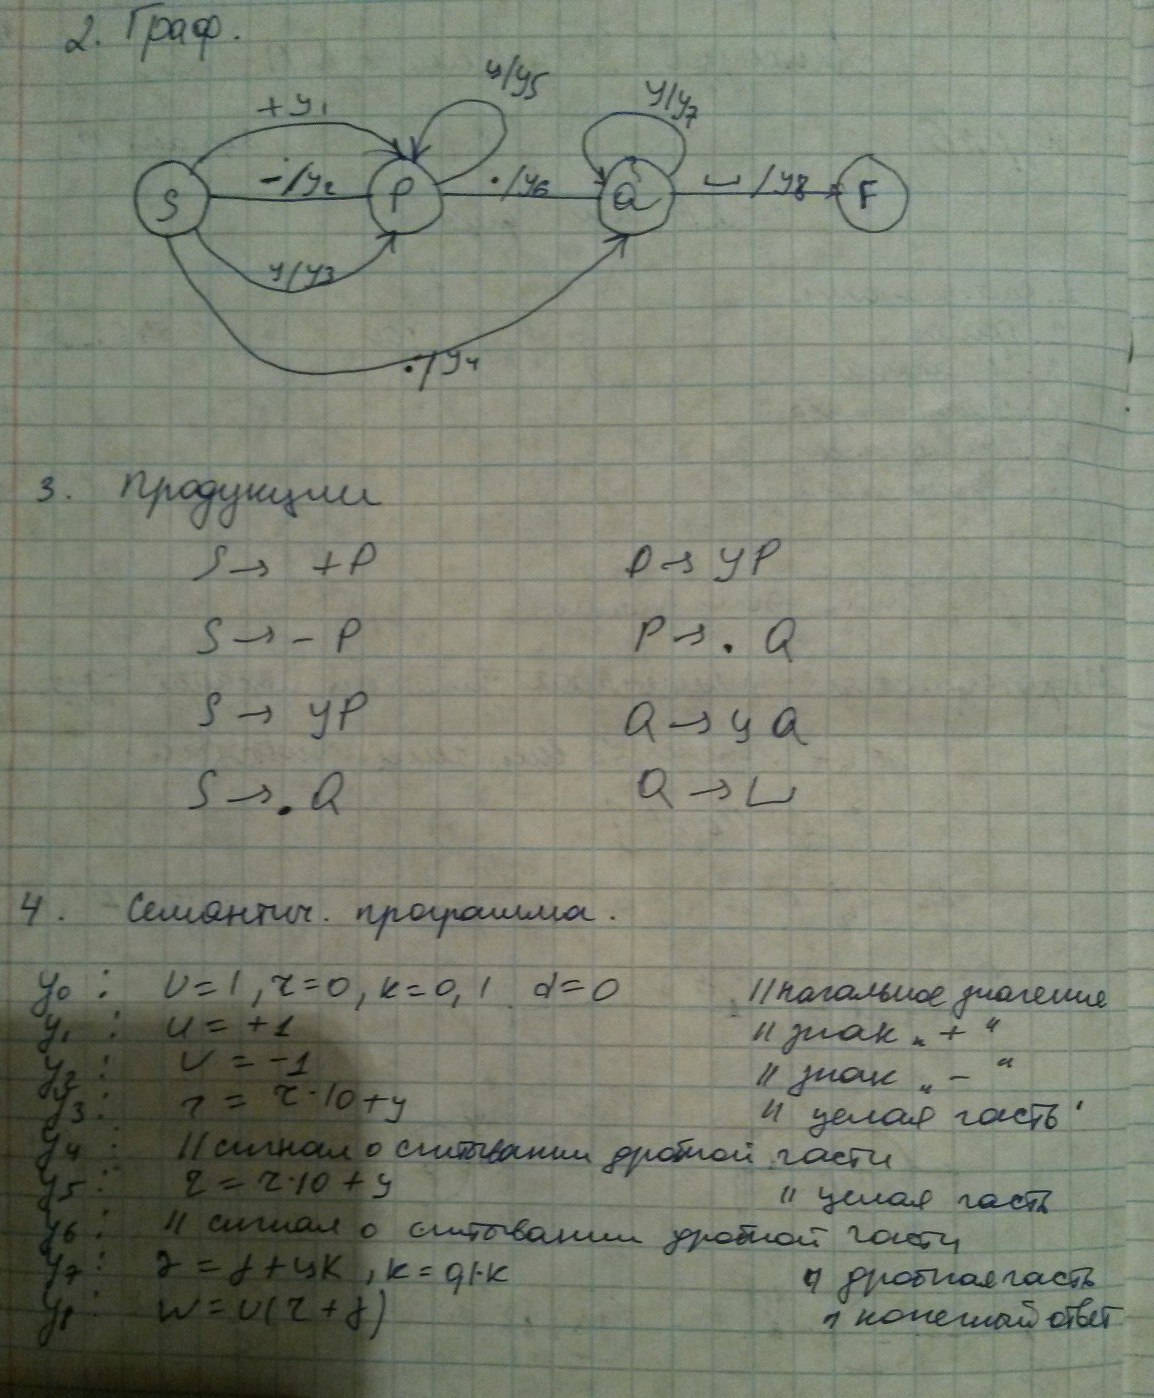 2. Граф.
ц/y5
ц/y7
+ y1
S
-/y2
P
./y6
Q
⌴/y8
F
ц/y3
./y4
3. Продукции
S → +P
P → цP
S → -P
P → .Q
S → цP
Q → цQ
S → .Q
Q → ⌴
4. Семантич. программа.
y0: U=1, r=0, k=0,1 d=0 // начальное значение
y1: U=+1 // знак „+“
y2: U=-1 // знак „-“
y3: r=r·10+ц // целая часть
y4: // сигнал о считывании дробной части
y5: r=r·10+ц // целая часть
y6: // сигнал о считывании дробной части
y7: d=d+цk, k=0,1·k // дробная часть
y8: W=U(r+d) // конечный ответ